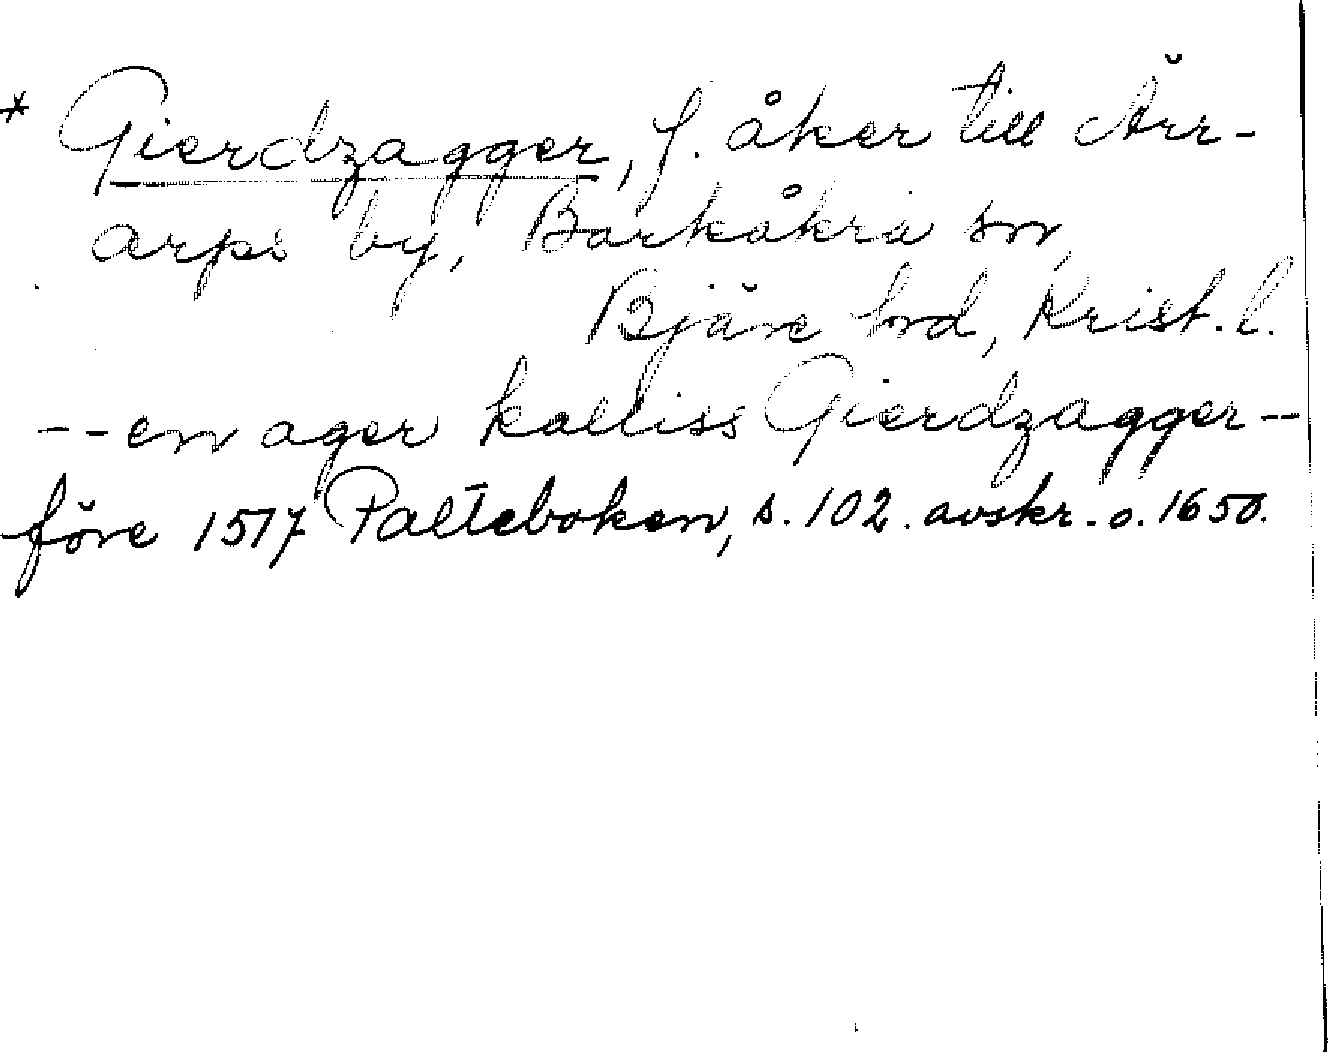 * Gierdzagger, f. åker till Ärr-
arps by, Barkåkra sn,
Bjäre hrd, Krist. l.
-- en ager kalliss Gierdzagger --
före 1517 Palteboken, s. 102. avskr. o. 1650.